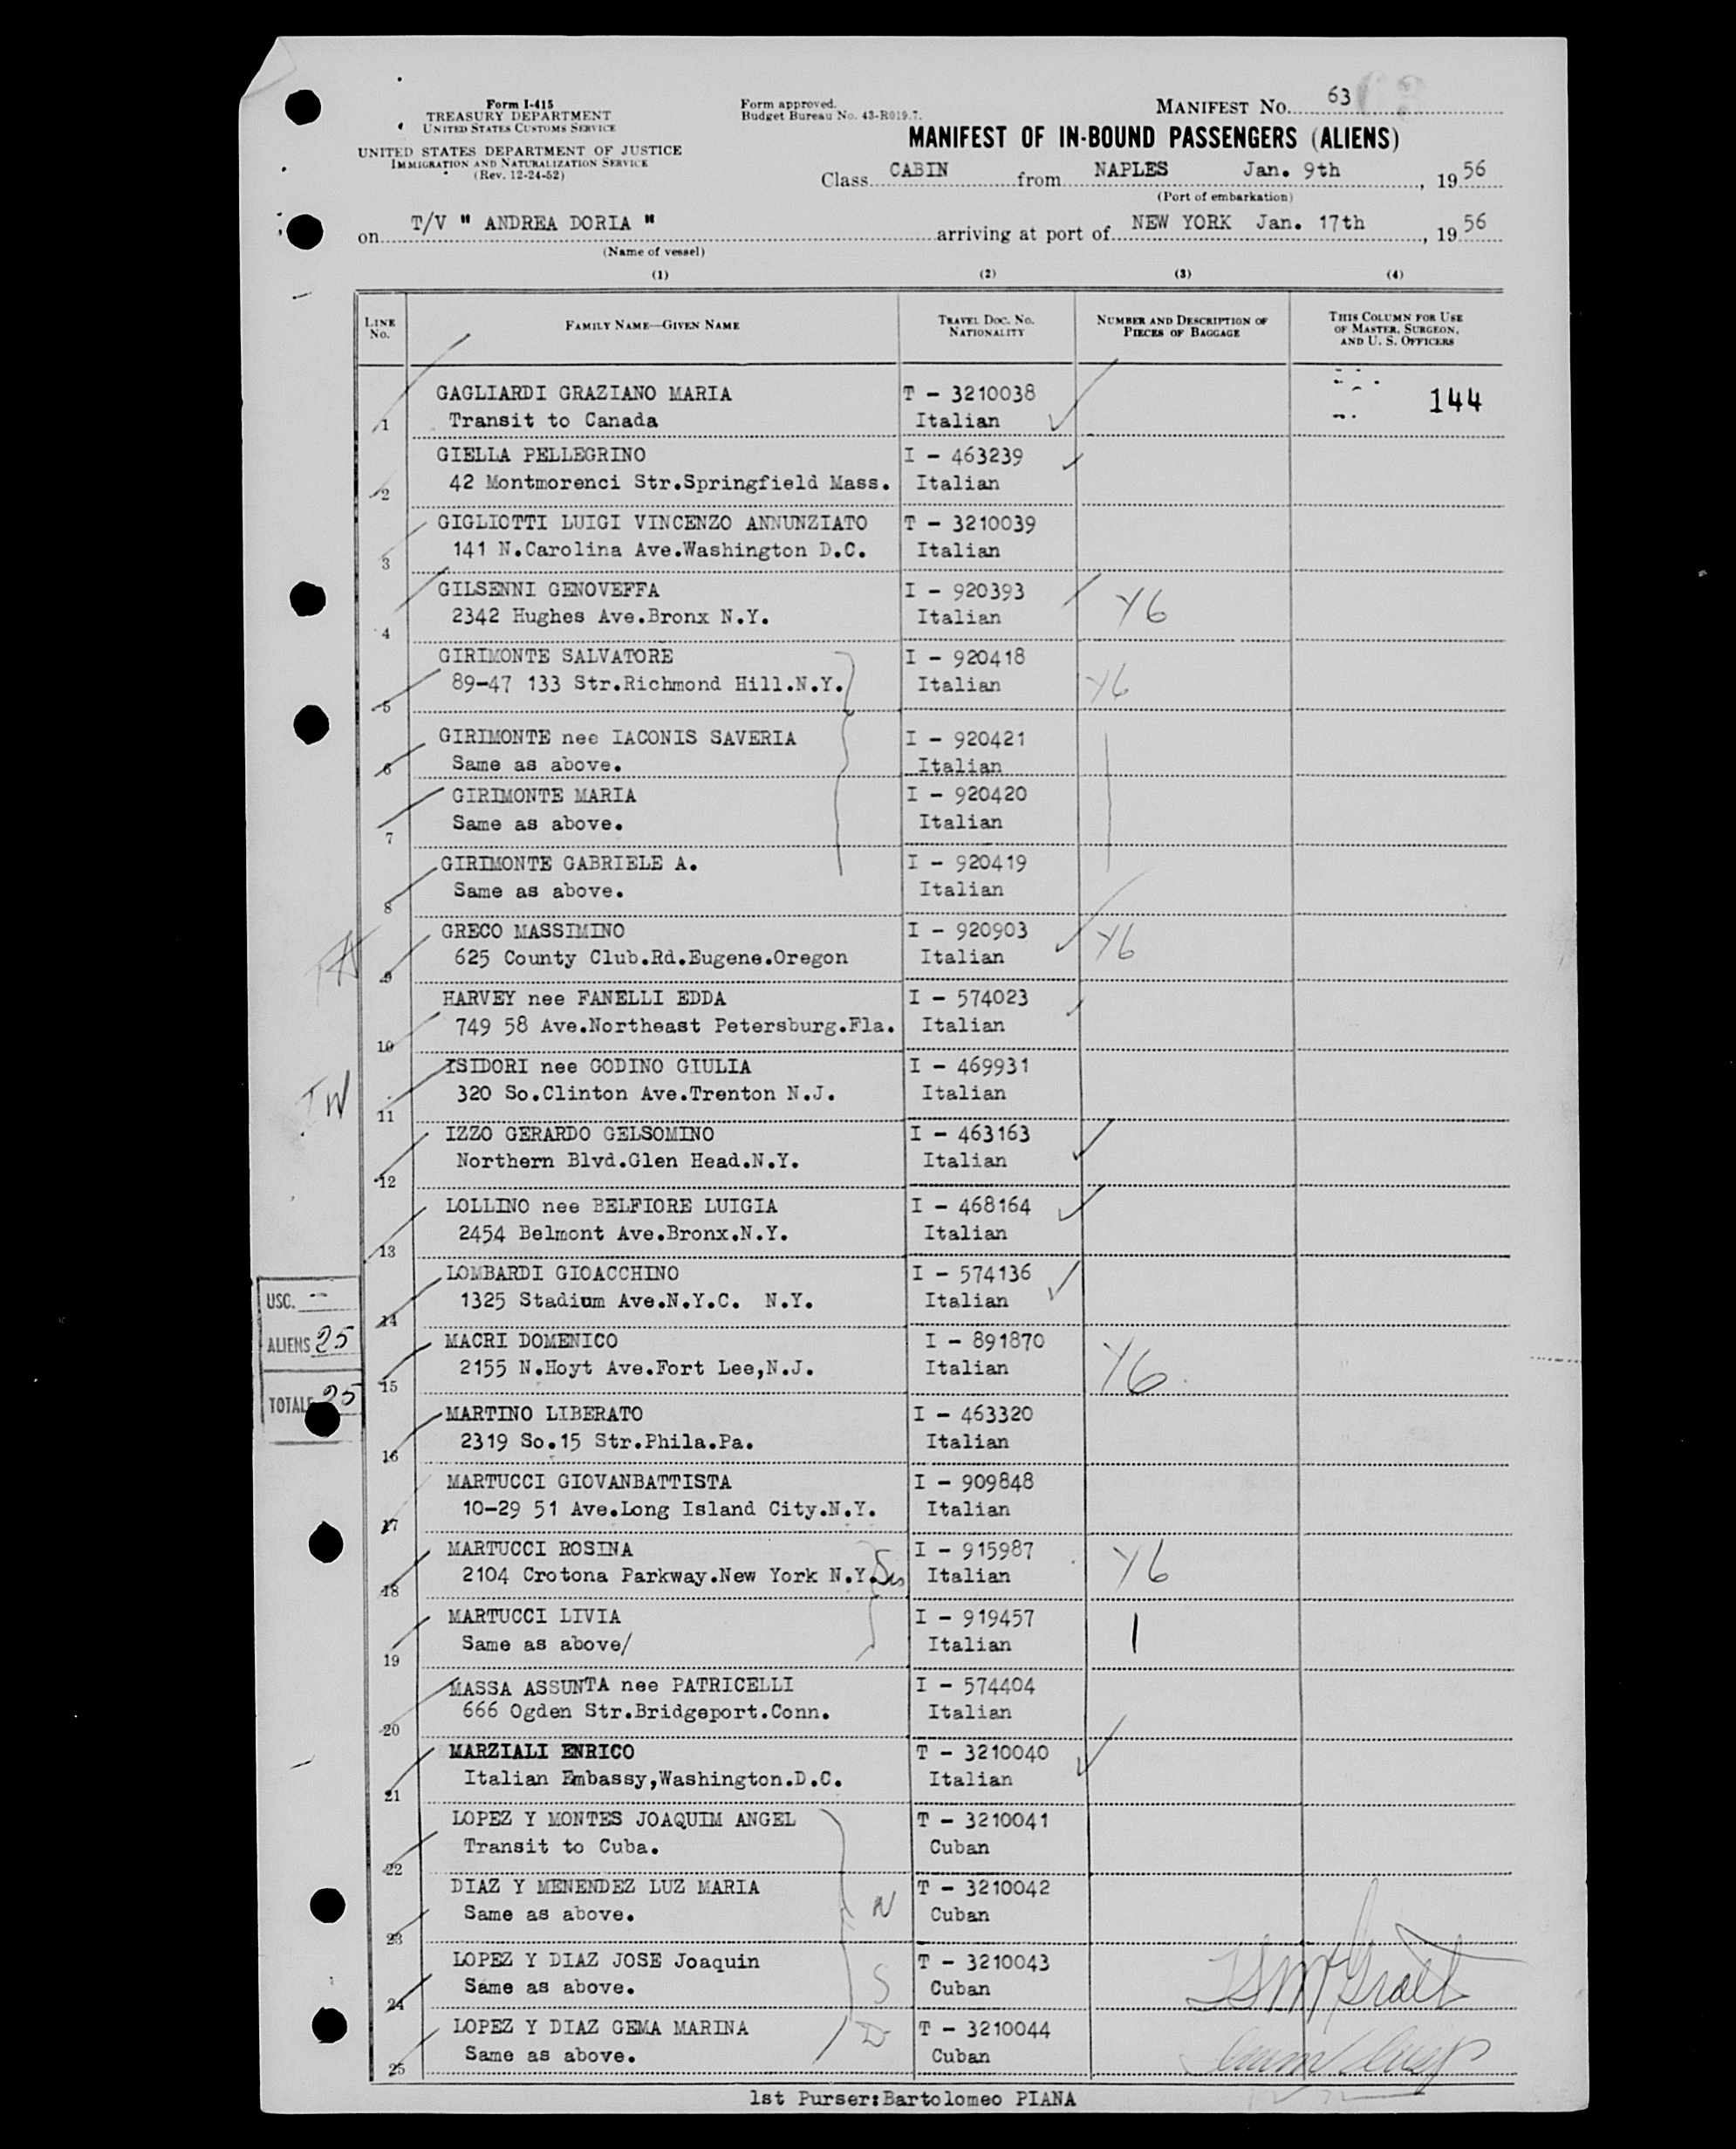 Form I-415
TREASURY DEPARTMENT
UNITED STATES CUSTOMS SERVICE
UNITED STATES DEPARTMENT OF JUSTICE
IMMIGRATION AND NATURALIZATION SERVICE
(Rev. 12-24-52)
Form approved.
Budget Bureau No. 43-R019.7.
MANIFEST No. 63
MANIFEST OF IN-BOUND PASSENGERS (ALIENS)
Class CABIN from NAPLES Jan. 9th, 1956
(Port of embarkation)
on T/V " ANDREA DORIA " arriving at port of NEW YORK Jan. 17th, 1956
(Name of vessel)
(1) (2) (3) (4)
LINE No. FAMILY NAME—GIVEN NAME TRAVEL DOC. NO. NATIONALITY NUMBER AND DESCRIPTION OF PIECES OF BAGGAGE THIS COLUMN FOR USE OF MASTER, SURGEON, AND U. S. OFFICERS
GAGLIARDI GRAZIANO MARIA T - 3210038 144
1 Transit to Canada Italian
GIELLA PELLEGRINO I - 463239
2 42 Montmorenci Str.Springfield Mass. Italian
GIGLIOTTI LUIGI VINCENZO ANNUNZIATO T - 3210039
3 141 N.Carolina Ave.Washington D.C. Italian
GILSENNI GENOVEFFA I - 920393 Y6
4 2342 Hughes Ave.Bronx N.Y. Italian
GIRIMONTE SALVATORE I - 920418
5 89-47 133 Str.Richmond Hill.N.Y. Italian Y6
GIRIMONTE nee IACONIS SAVERIA I - 920421
6 Same as above. Italian
GIRIMONTE MARIA I - 920420
7 Same as above. Italian
GIRIMONTE GABRIELE A. I - 920419
8 Same as above. Italian
GRECO MASSIMINO I - 920903 Y6
9 625 County Club.Rd.Eugene.Oregon Italian
HARVEY nee FANELLI EDDA I - 574023
10 749 58 Ave.Northeast Petersburg.Fla. Italian
ISIDORI nee GODINO GIULIA I - 469931
11 320 So.Clinton Ave.Trenton N.J. Italian
IZZO GERARDO GELSOMINO I - 463163
12 Northern Blvd.Glen Head.N.Y. Italian
LOLLINO nee BELFIORE LUIGIA I - 468164
13 2454 Belmont Ave.Bronx.N.Y. Italian
LOMBARDI GIOACCHINO I - 574136
14 1325 Stadium Ave.N.Y.C. N.Y. Italian
MACRI DOMENICO I - 891870
15 2155 N.Hoyt Ave.Fort Lee,N.J. Italian Y6
MARTINO LIBERATO I - 463320
16 2319 So.15 Str.Phila.Pa. Italian
MARTUCCI GIOVANBATTISTA I - 909848
17 10-29 51 Ave.Long Island City.N.Y. Italian
MARTUCCI ROSINA I - 915987 Y6
18 2104 Crotona Parkway.New York N.Y. Italian
MARTUCCI LIVIA I - 919457
19 Same as above/ Italian
MASSA ASSUNTA nee PATRICELLI I - 574404
20 666 Ogden Str.Bridgeport.Conn. Italian
MARZIALI ENRICO T - 3210040
21 Italian Embassy,Washington.D.C. Italian
LOPEZ Y MONTES JOAQUIM ANGEL T - 3210041
22 Transit to Cuba. Cuban
DIAZ Y MENENDEZ LUZ MARIA T - 3210042
23 Same as above. N Cuban
LOPEZ Y DIAZ JOSE Joaquin T - 3210043
24 Same as above. S Cuban
LOPEZ Y DIAZ GEMA MARINA T - 3210044
25 Same as above. D Cuban
1st Purser:Bartolomeo PIANA
IW
USC. -
ALIENS 25
TOTALE 25